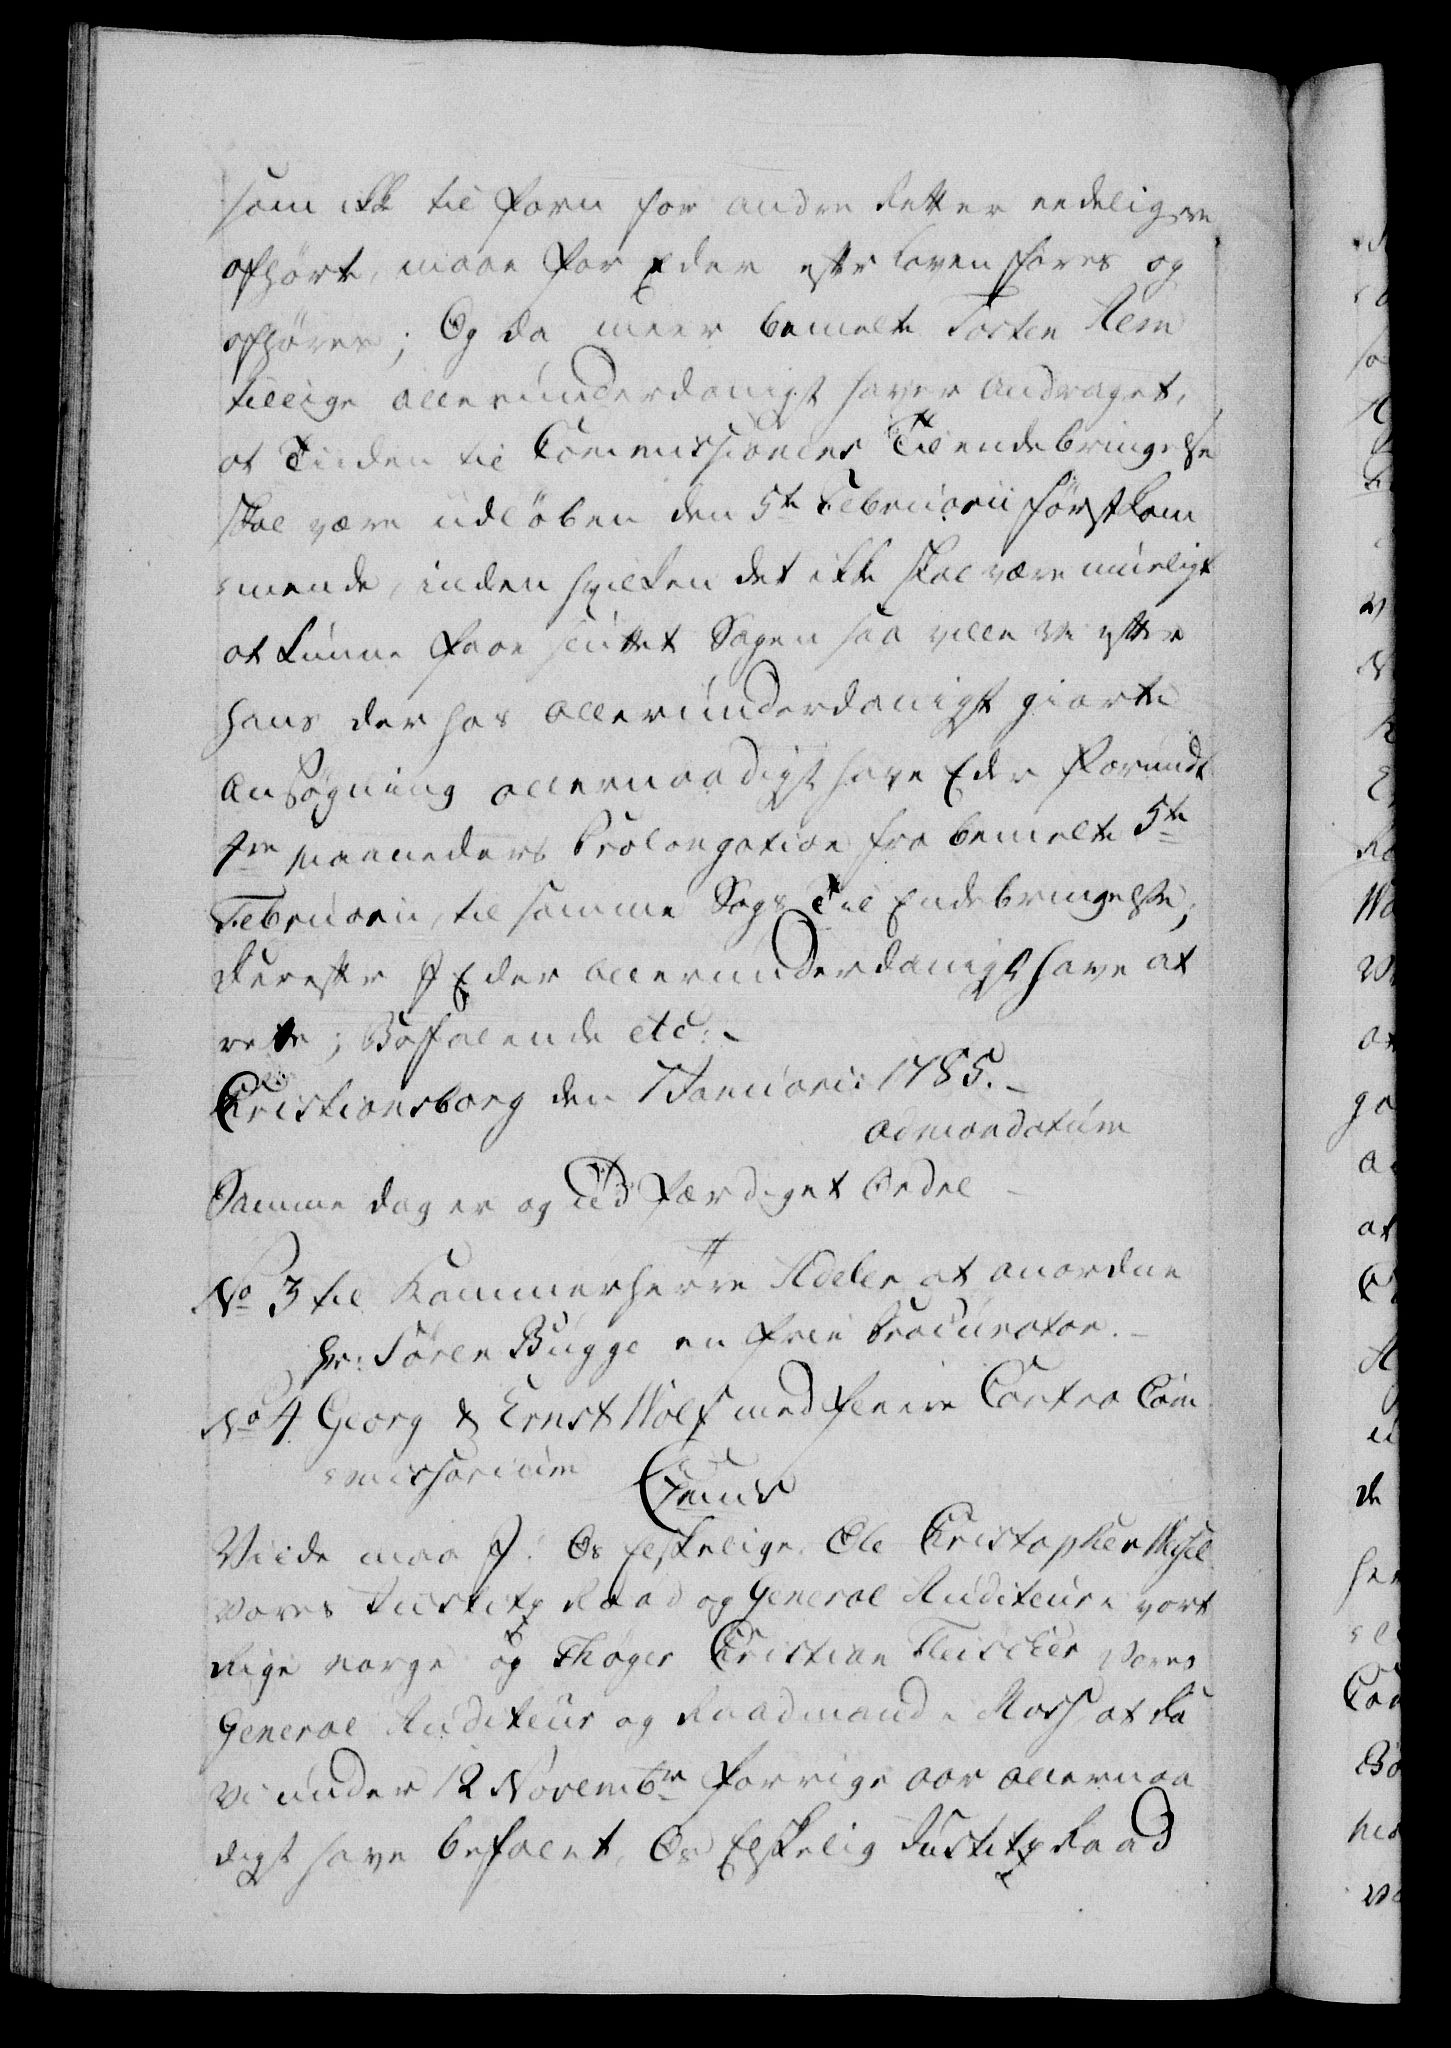 som ikke til forn for andre Retter eedeligen
afhørt, maae for Eder efter Loven føres og
afhøres; Og da meer bemelte Tosten Rem
tillige allerunderdanigst haver Andraget,
at Tiiden til Commissionens Til endebringelse
skal være udløben den 5te Februarii førstkom
mende, inden hvilken det ikke skal være mueligt
at kunne faae sluttet Sagen saa ville Vi efter
hans der hos allerunderdanigst giorte
Ansøgning allernaadigst have Eder forundt
4re Maaneders Prolongation fra bemelte 5te
Februarii, til samme Sags Til Endebringelse,
Derefter I Eder allerunderdanigst have at
rette; Befalende etc:
Christiansborg den 7 Januarii 1785.
ad mandatum
Samme dag er og udfærdiget Ordre
No 3 til Kammerherre Adeler at anordne
Hr: Søren Bugge en frie Procurator.
No 4 Georg & Ernst Wolf med fleere Contra Com
missarium
Genus
Viide maa I. Os elskelige Ole Christopher Wessel
vores Justitz Raad og General Auditeur i vort
Rige Norge og Thøger Christian Fleischer Vores
General Auditeur og Raadmand i Moss, at da
Vi under 12 Novembr forrige aar allernaa
digst have befalet, Os Elskelig Justitz Raad